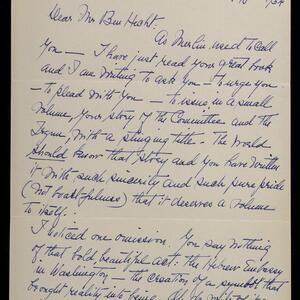 Dear Mr Ben Hecht
As Merlin used to call
You — I have just read your great book
and I am writing to ask you — to urge you
— to plead with you — to issue in a small
volume, your story of the Committee and the
Irgun with a stinging title. The World
should know that story and you have written
it with such sincerity and such pure pride
(not boastfulness) that it deserves a volume
to itself.
I noticed one omission. You say nothing
of that bold, beautiful act: the Hebrew Embassy
in Washington — the creation of a symbol that
brought reality into being.